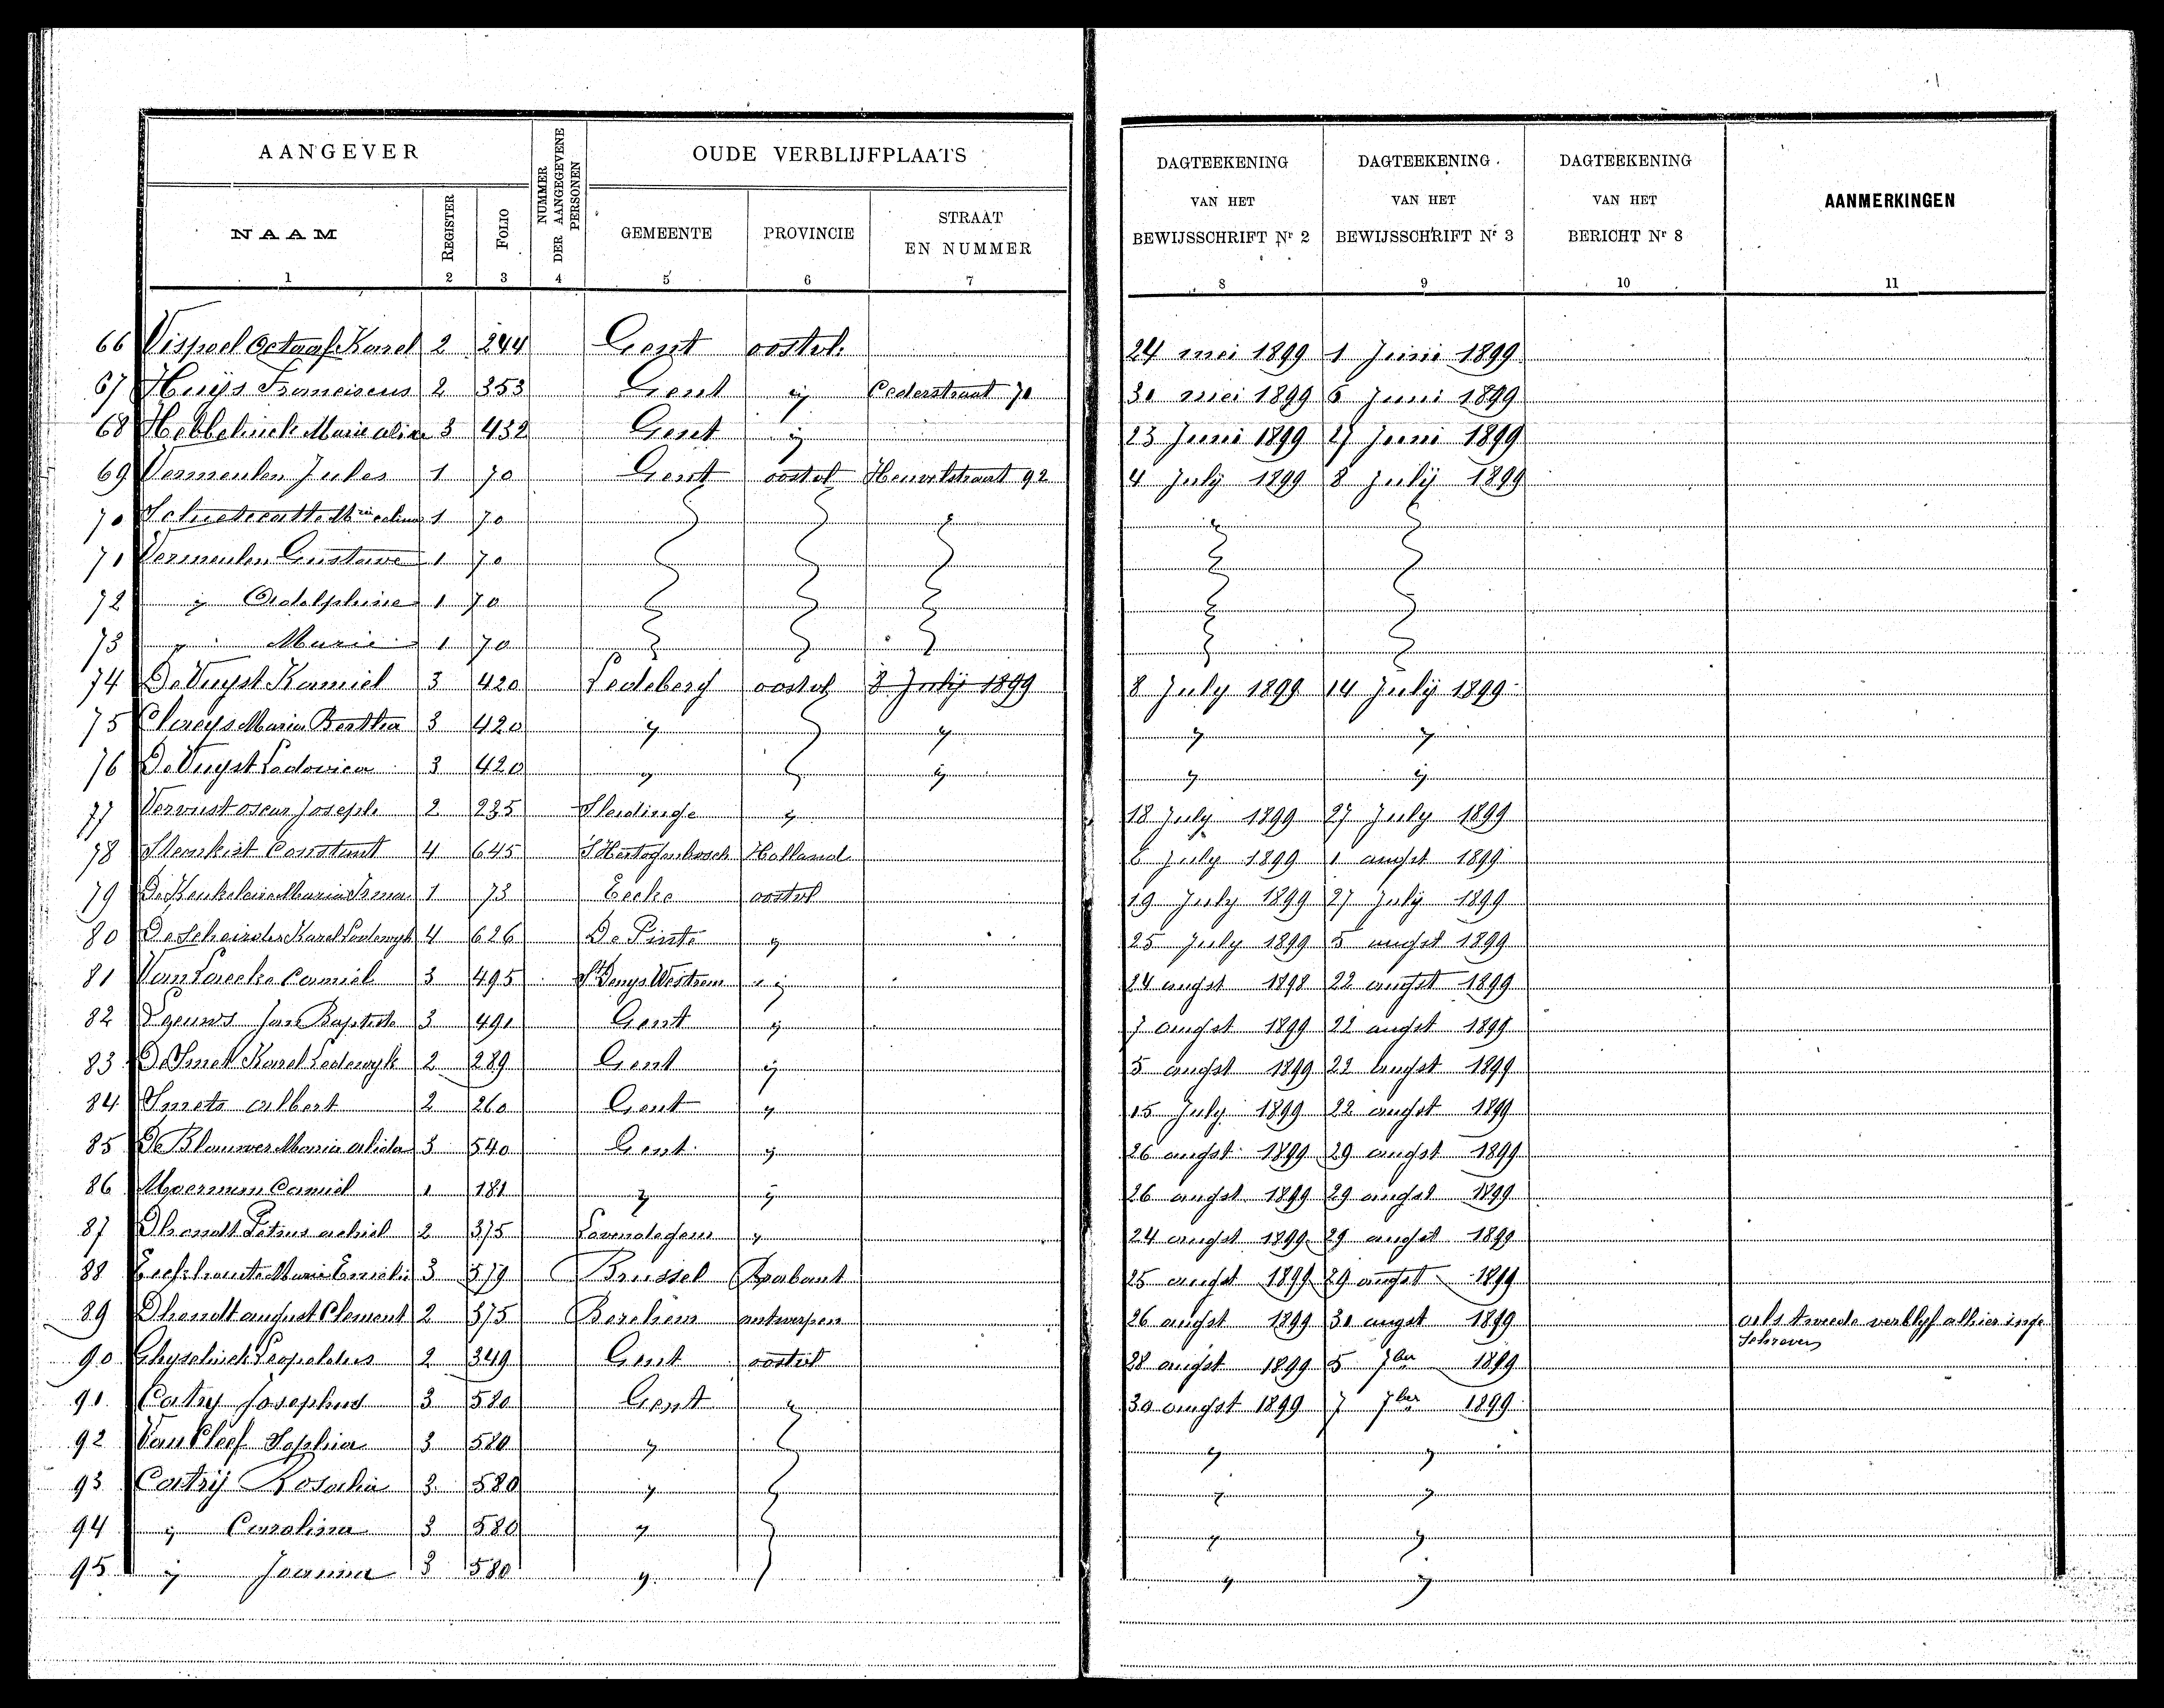 AANGEVER
NUMMER DER AANGEGEVENE PERSONEN
OUDE VERBLIJFPLAATS
DAGTEEKENING VAN HET BEWIJSSCHRIFT Nr 2
DAGTEEKENING VAN HET BEWIJSSCHRIFT Nr 3
DAGTEEKENING VAN HET BERICHT Nr 8
AANMERKINGEN
NAAM REGISTER FOLIO GEMEENTE PROVINCIE STRAAT EN NUMMER
1 2 3 4 5 6 7 8 9 10 11
66 Vispoel Octaaf Karel 2 244 Gent oostvl. 24 mei 1899 1 Juni 1899
67 Huijs Franciscus 2 353 Gent ij Cederstraat 70 30 mei 1899 6 Juni 1899
68 Hebbelinck Marie 3 432 Gent ij 23 Juni 1899 27 Juni 1899
69 Vermeulen Jules 1 70 Gent oostvl Heuvelstraat 92 4 July 1899 8 Julij 1899
70 1 70
71 Vermeulen Gustave 1 70
72 y Adolphine 1 70
73 y Marie 1 70
74 De Vuyst Kamiel 3 420 Ledeberg oostvl 8 Julij 1899 8 July 1899 14 Julij 1899
75 Claeys Maria Bertha 3 420 y y y y
76 De Vuyst Ludovica 3 420 y ij y ij
77 Vervust oscar Joseph 2 235 Sleidinge y 18 July 1899 27 July 1899
78 Constant 4 645 S'Hertogenbosch Holland 6 July 1899 1 augst 1899
79 De Keukeleire Maria Irma 1 73 Eecke oostvl 19 July 1899 27 July 1899
80 De Scheirder Karel Lodewyk 4 626 De Pinte y 25 July 1899 5 augst 1899
81 Van Laecke Camiel 3 495 St Denys Westrem ij 24 augst 1898 22 augst 1899
82 Jan Baptiste 3 491 Gent ij 7 augst 1899 22 augst 1899
83 De Smet Karel Lodewyk 2 289 Gent ij 5 augst 1899 22 augst 1899
84 Smets albert 2 260 Gent y 15 July 1899 22 augst 1899
85 De Blauwer Maria alida 3 540 Gent ij 26 augst 1899 29 augst 1899
86 Moerman Camiel 1 181 y ij 26 augst 1899 29 augst 1899
87 Dhondt Petrus achiel 2 375 Lovendegem y 24 augst 1899 29 augst 1899
88 Eeckhaute Marie Emelie 3 579 Brussel Brabant 25 augst 1899 29 augst 1899
89 Dhondt august Clement 2 375 Berchem antwerpen 26 augst 1899 30 augst 1899 als tweede verblyf alhier inge
schreven
90 Ghyselinck Leopoldus 2 349 Gent oostvl 28 augst 1899 5 7ber 1899
91 Catry Josephus 3 580 Gent y 30 augst 1899 7 7ber 1899
92 Van Cleef Sophia 3 580 y y y
93 Catrij Rosalia 3 580 y y y
94 ij Carolina 3 580 y y y
95 ij Joanna 3 580 y y ij